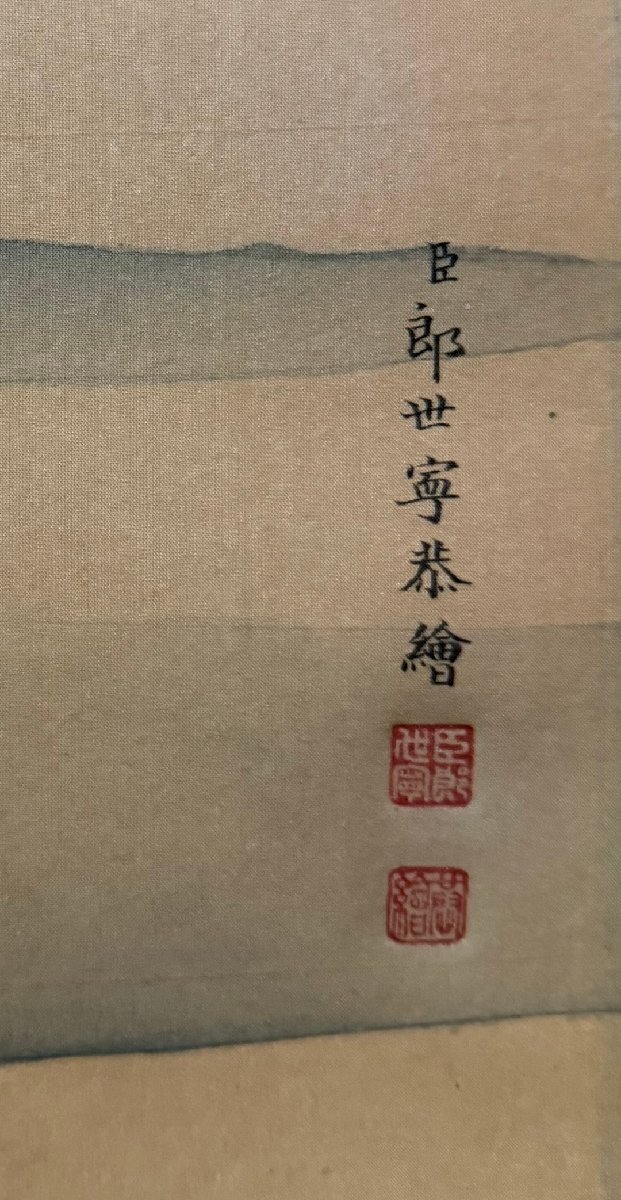 臣郎世寧恭繪
臣郎世寧
恭繪